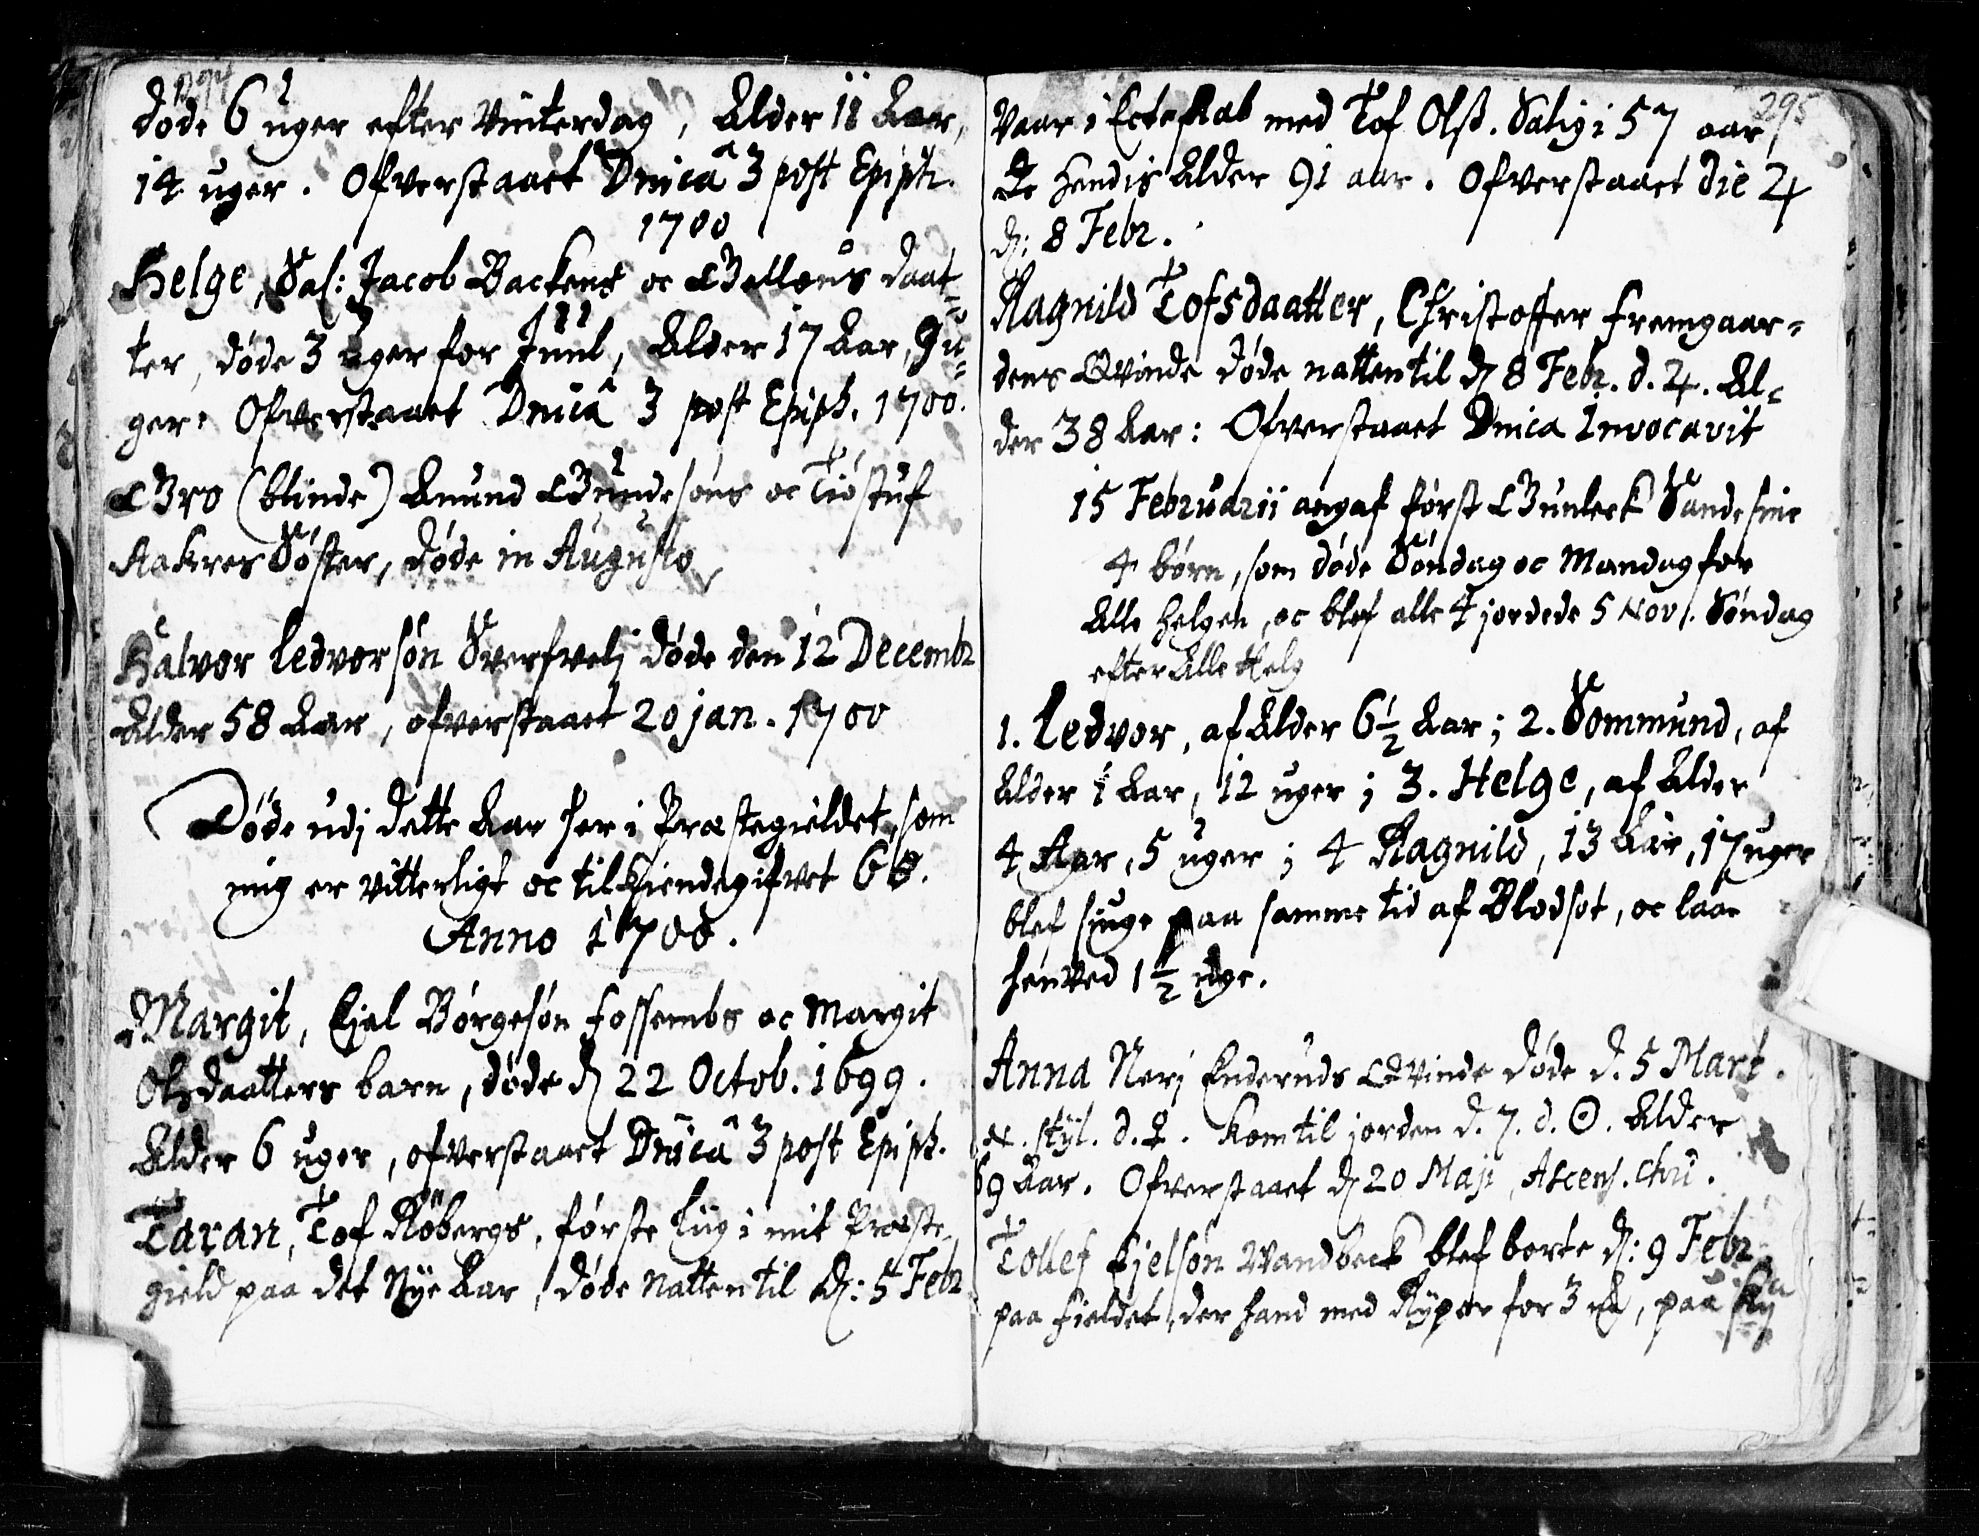 294
døde 6 uger efter Vinterdag, Alder 18 Aar,
14 uger. Ofverstaaet Dnicâ 3 post Epiph.
1700
Helge, Sal: Jacob Backens oc Gullous daat=
ter, døde 3 uger for Juul, Alder 17 Aar, 9 u=
ger. Ofverstaaet Dnicâ 3 post Epiph. 1700.
Gro (blinde) Anund Gundesøns oc Tiøstuf
Aakres Søster, døde in Augusto
Halvor Ledvorsøn Sverfveli døde den 12 Decembr
Alder 58 Aar, ofverstaaet 20 jan. 1700
Døde udj dette Aar her i Præstegieldet, som
mig er vitterligt oc tilkiendegifvet 60.
Anno 1700.
Margit, Kjel Børgesøn Fossembs oc Margit
Olsdaatters barn, døde dn 22 Octob. 1699.
Alder 6 uger, ofverstaaet Dnicâ 3 post Epiph.
Taran, Tof Røbergs, første Liig i mit Præste-
gield paa det Nye Aar, døde natten til dn: 5 Febr
295
Vaar i Ecteskab med Tof Olss. Salig i 57 aar
Er hendis Alder 91 aar. Ofverstaaet die ♃
dn: 8 Febr.
Ragnild Tofsdaatter, Christoffer Fremgaar=
dens Qvinde døde natten til dn 8 Febr. d. ♃. Al=
der 38 Aar: Ofverstaaet Dnica Invocavit
15 Februarii angaf først Gunleck Sande sine
4 børn, som døde Søndag oc Mandag for
Alle Helgen, oc blef alle 4 jordede 5 Nov. Søndag
efter Alle Helg
1. Ledvor, af Alder 6½ Aar; 2. Sommund, af
Alder 1 Aar, 12 uger; 3. Helge, af Alder
4 Aar, 5 uger; 4 Ragnild, 13 Aar, 17 uger
blef siuge paa samme tid af Blodsot, oc laae
henved 1½ uge.
Anna Nerj Enderuds Qvinde døde d. 5 Mart.
st. styl. d. ♀. Kom til jorden d. 7. d. ☉. Alder
69 Aar. Ofverstaaet dn 20 Maji, Ascens. Chri.
Tollef Kjelsøn Wandbeck blef borte dn: 9 Febr
paa Fieldet, der hand med Ryper for 3 , paa